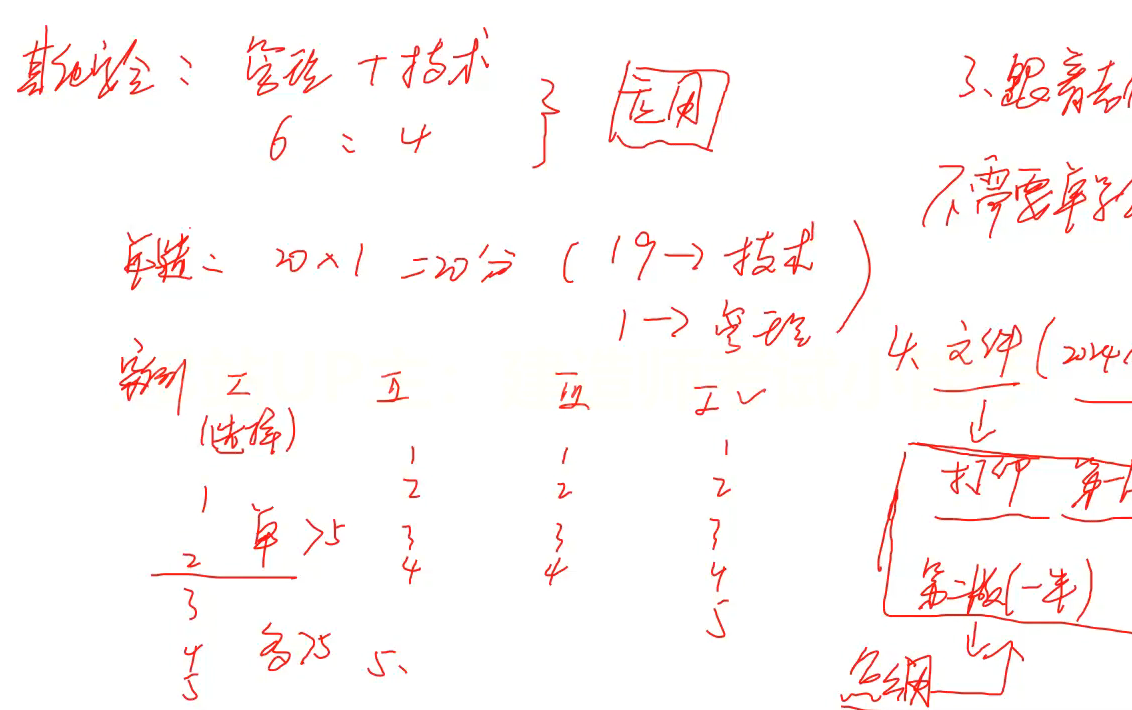 其他安全：管理＋技术
6：4 } 应用
单选：20×1＝20分（19→技术
1→管理）
案例 I II III I ✓
（选择）
1 1 1 1
2 2 2
单 >5
2 3 3 3
4 4 4
3 5
4 多>5 5、
5
3、跟着去
不需要单
4、文件（2024
↓
打印 第一
第二版（一半）